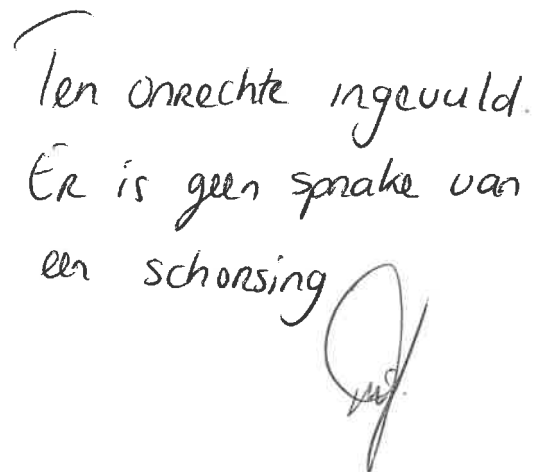 Ten onrechte ingevuld.
Er is geen sprake van
een schorsing